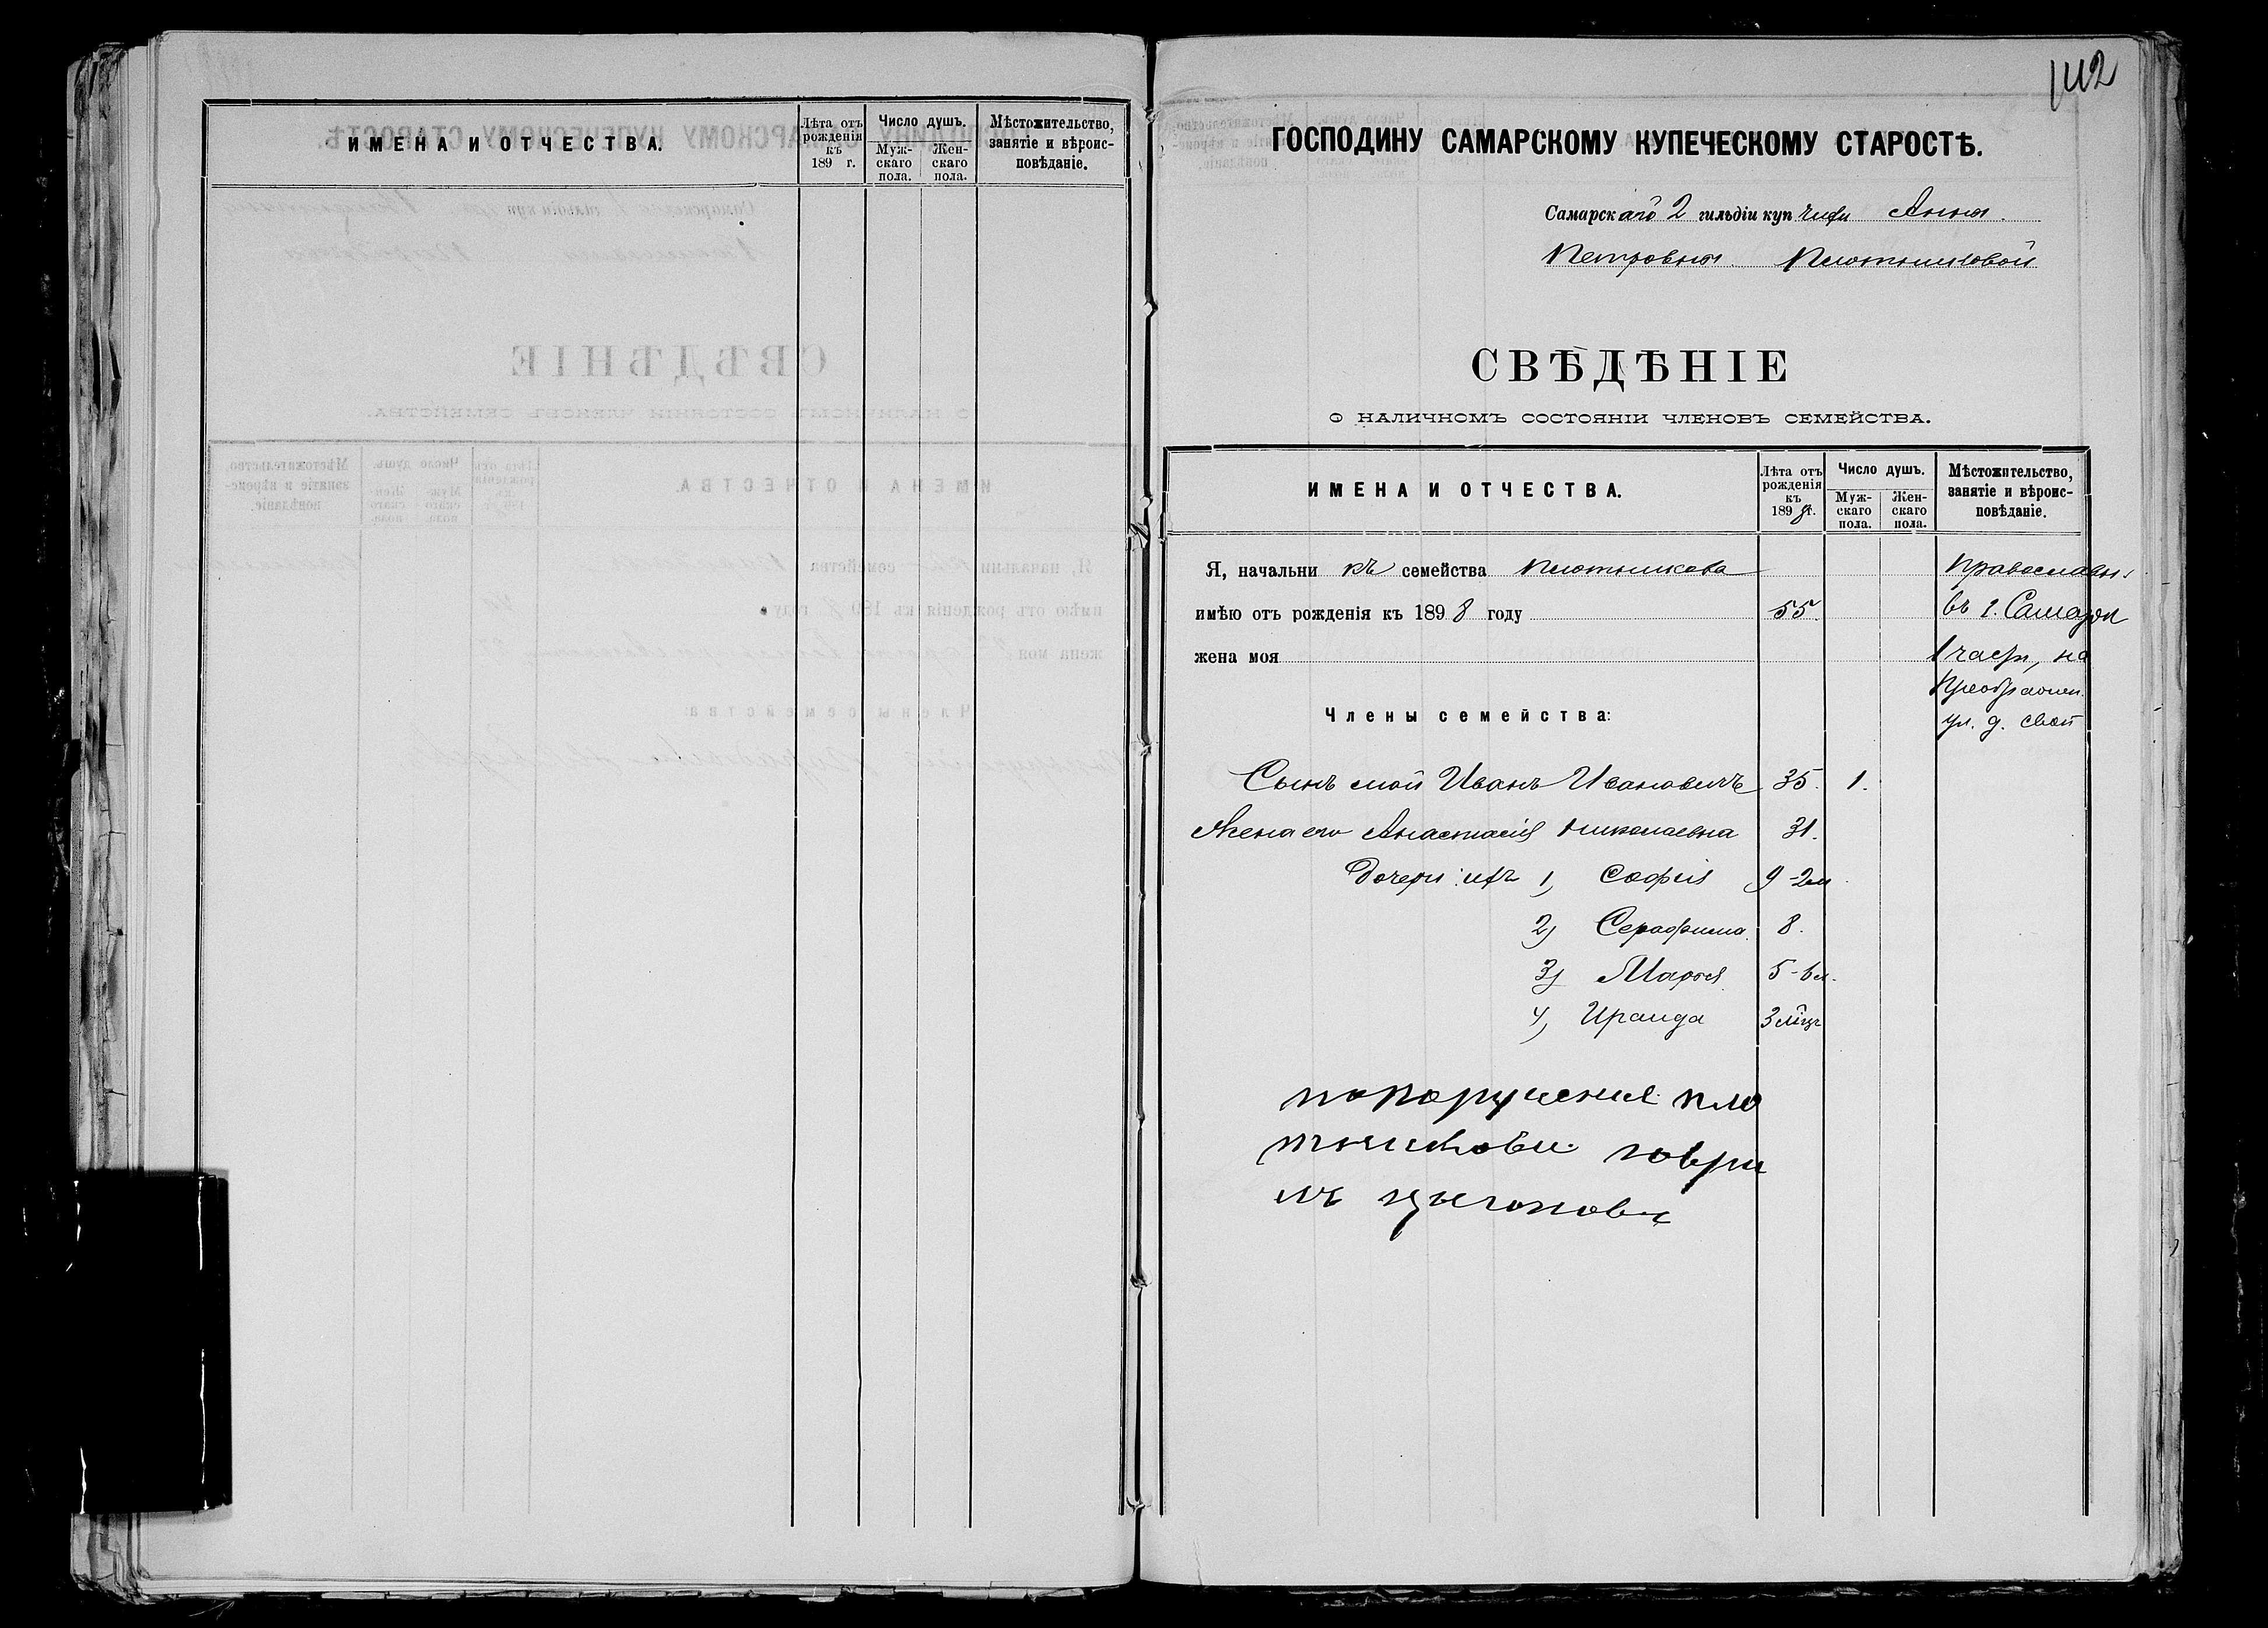 ИМЕНА И ОТЧЕСТВА.
Лѣта отъ рожденія къ 189 г.
Число душъ.
Муж-скаго пола.
Жен-скаго пола.
Мѣстожительство, занятіе и вѣроис-повѣданіе.
142
ГОСПОДИНУ САМАРСКОМУ КУПЕЧЕСКОМУ СТАРОСТѢ.
Самарскаго 2 гильдіи купчихи Анна
Петровна Плотниковой
СВѢДѢНІЕ
О НАЛИЧНОМЪ СОСТОЯНІИ ЧЛЕНОВЪ СЕМЕЙСТВА.
ИМЕНА И ОТЧЕСТВА.
Лѣта отъ рожденія къ 1898 г.
Число душъ.
Муж-скаго пола.
Жен-скаго пола.
Мѣстожительство, занятіе и вѣроис-повѣданіе.
Я, начальникъ семейства Плотникова Православн.
имѣю отъ рожденія къ 1898 году 55. въ г. Самарѣ
жена моя 1 части, на
Преображен.
Члены семейства: ул. д. свой
Сынъ мой Иванъ Ивановичъ 35. 1.
Жена его Анастасія Николаевна 31.
Дочери ихъ 1) Софія 9-2м
2) Серафима 8.
3) Марія 5-6м.
4) Ираида 3 мѣц
попоручения пло
тниковы